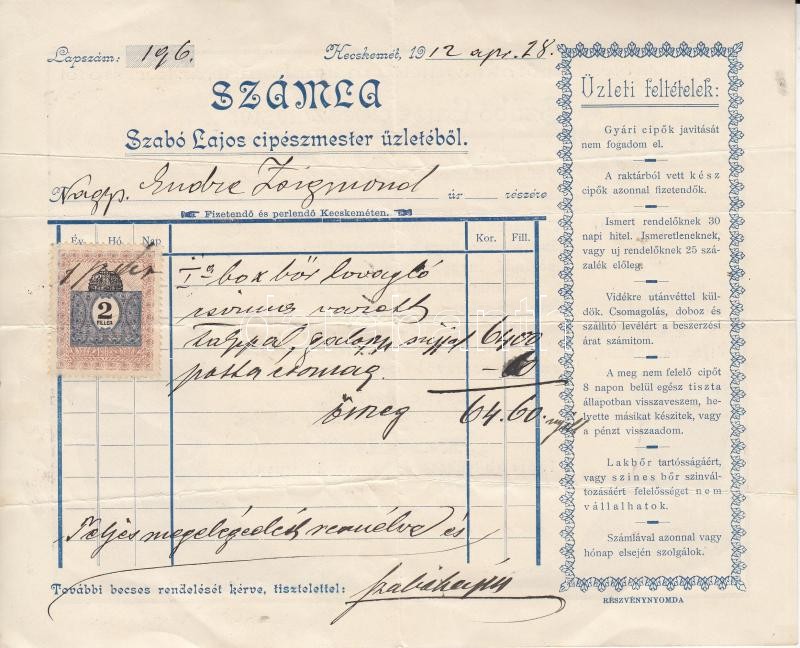 Lapszám: 196.
Kecskemét, 1912 apr. 28.
SZÁMLA
Szabó Lajos cipészmester üzletéből.
Nagys. Endre Zsigmond úr részére
Fizetendő és perlendő Kecskeméten.
Év. Hó. Nap Kor. Fill.
2
FILLÉR
Iª box bőr lovagló
csizma varott
talppal, galopp szijjal 64,00
posta csomag. - 60
Ömeg 64.60.
Teljes megelégedését remélve és
További becses rendelését kérve, tisztelettel: Szabó Lajos
Üzleti feltételek:
Gyári cipők javitását
nem fogadom el.
A raktárból vett kész
cipők azonnal fizetendők.
Ismert rendelőknek 30
napi hitel. Ismeretleneknek,
vagy uj rendelőknek 25 szá-
zalék előleg.
Vidékre utánvéttel kül-
dök. Csomagolás, doboz és
szállitó levélért a beszerzési
árat számitom.
A meg nem felelő cipőt
8 napon belül egész tiszta
állapotban visszaveszem, he-
lyette másikat készitek, vagy
a pénzt visszaadom.
Lakbőr tartósságáért,
vagy szines bőr szinvál-
tozásáért felelősséget nem
vállalhatok.
Számlával azonnal vagy
hónap elsején szolgálok.
RÉSZVÉNYNYOMDA